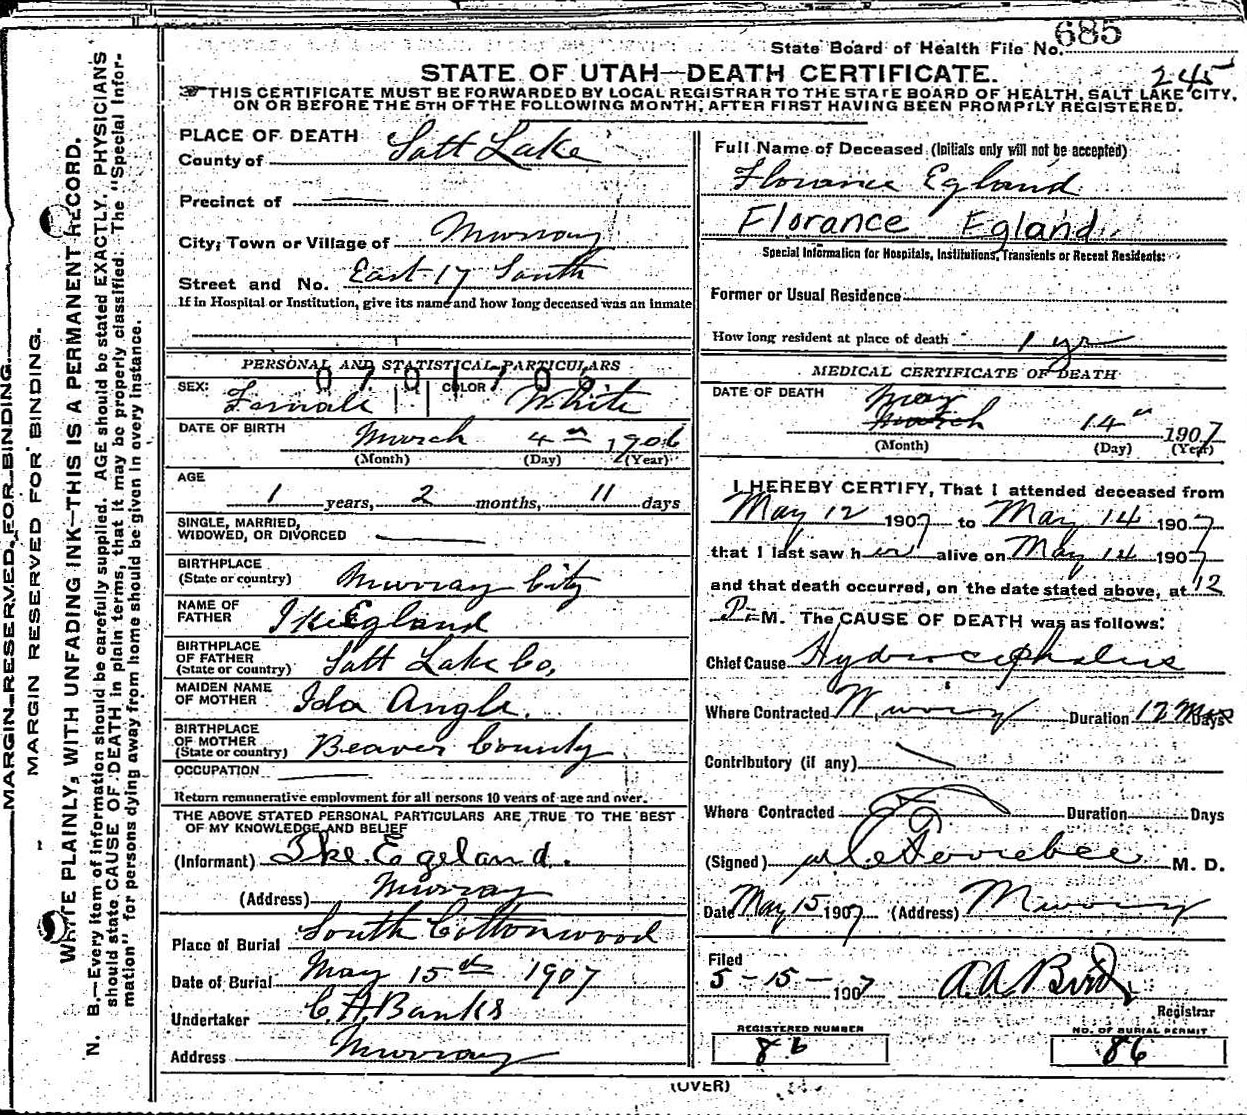 685
State Board of Health File No.
STATE OF UTAH—DEATH CERTIFICATE.
245
THIS CERTIFICATE MUST BE FORWARDED BY LOCAL REGISTRAR TO THE STATE BOARD OF HEALTH, SALT LAKE CITY,
ON OR BEFORE THE 5TH OF THE FOLLOWING MONTH, AFTER FIRST HAVING BEEN PROMPTLY REGISTERED.
MARGIN RESERVED FOR BINDING.
MARGIN RESERVED FOR BINDING.
WRITE PLAINLY, WITH UNFADING INK—THIS IS A PERMANENT RECORD.
N. B.—Every item of information should be carefully supplied. AGE should be stated EXACTLY. PHYSICIANS
should state CAUSE OF DEATH in plain terms, that it may be properly classified. The "Special Infor-
mation" for persons dying away from home should be given in every instance.
PLACE OF DEATH
County of Salt Lake
Precinct of
City, Town or Village of Murray
Street and No. East 17 South
If in Hospital or Institution, give its name and how long deceased was an inmate
PERSONAL AND STATISTICAL PARTICULARS
SEX: Female COLOR White
DATE OF BIRTH March 4th 1906
(Month) (Day) (Year)
AGE
1 years, 2 months, 11 days
SINGLE, MARRIED,
WIDOWED, OR DIVORCED
BIRTHPLACE
(State or country) Murray City
NAME OF
FATHER Ike Egland
BIRTHPLACE
OF FATHER
(State or country) Salt Lake Co,
MAIDEN NAME
OF MOTHER Ida Angle.
BIRTHPLACE
OF MOTHER
(State or country) Beaver County
OCCUPATION
Return remunerative employment for all persons 10 years of age and over.
THE ABOVE STATED PERSONAL PARTICULARS ARE TRUE TO THE BEST
OF MY KNOWLEDGE AND BELIEF
(Informant) Ike Egeland.
(Address) Murray
Place of Burial South Cottonwood
Date of Burial May 15th 1907
Undertaker C. A. Banks
Address Murray
Full Name of Deceased (Initials only will not be accepted)
Florance Egland
Florance Egland
Special Information for Hospitals, Institutions, Transients or Recent Residents:
Former or Usual Residence
How long resident at place of death 1 yr
MEDICAL CERTIFICATE OF DEATH
DATE OF DEATH May
March 14" 1907
(Month) (Day) (Year)
I HEREBY CERTIFY, That I attended deceased from
May 12 1907 to May 14 1907
that I last saw her alive on May 14 1907
and that death occurred, on the date stated above, at 12
P. M. The CAUSE OF DEATH was as follows:
Chief Cause Hydrocephalus
Where Contracted Murray Duration 12 Mos Days
Contributory (if any)
Where Contracted Duration Days
(Signed) M. D.
Date May 15 1907 (Address) Murray
Filed
5-15-1907 A. A. Bird
Registrar
REGISTERED NUMBER
86
NO. OF BURIAL PERMIT
86
(OVER)